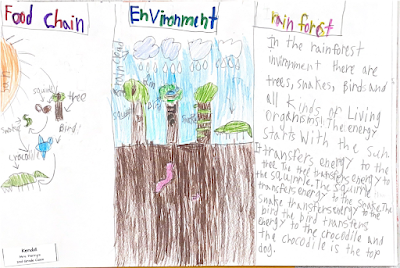 Food chain
squirrel
tree
snake
bird!
crocodile
Kendal
2nd Grade Class
Environment
rain forest
In the rainforest
invironment there are
trees, snakes, birds and
all kinds of living
organisms! the energy
starts with the sun.
It transfers energy to the
tree. The tree transfers energy to
the squirrle. The squirrle
transfers energy to the snake. The
snake transfers energy to the
bird. the bird transfers
energy to the crocodile and
the chocodile is the top
dog.